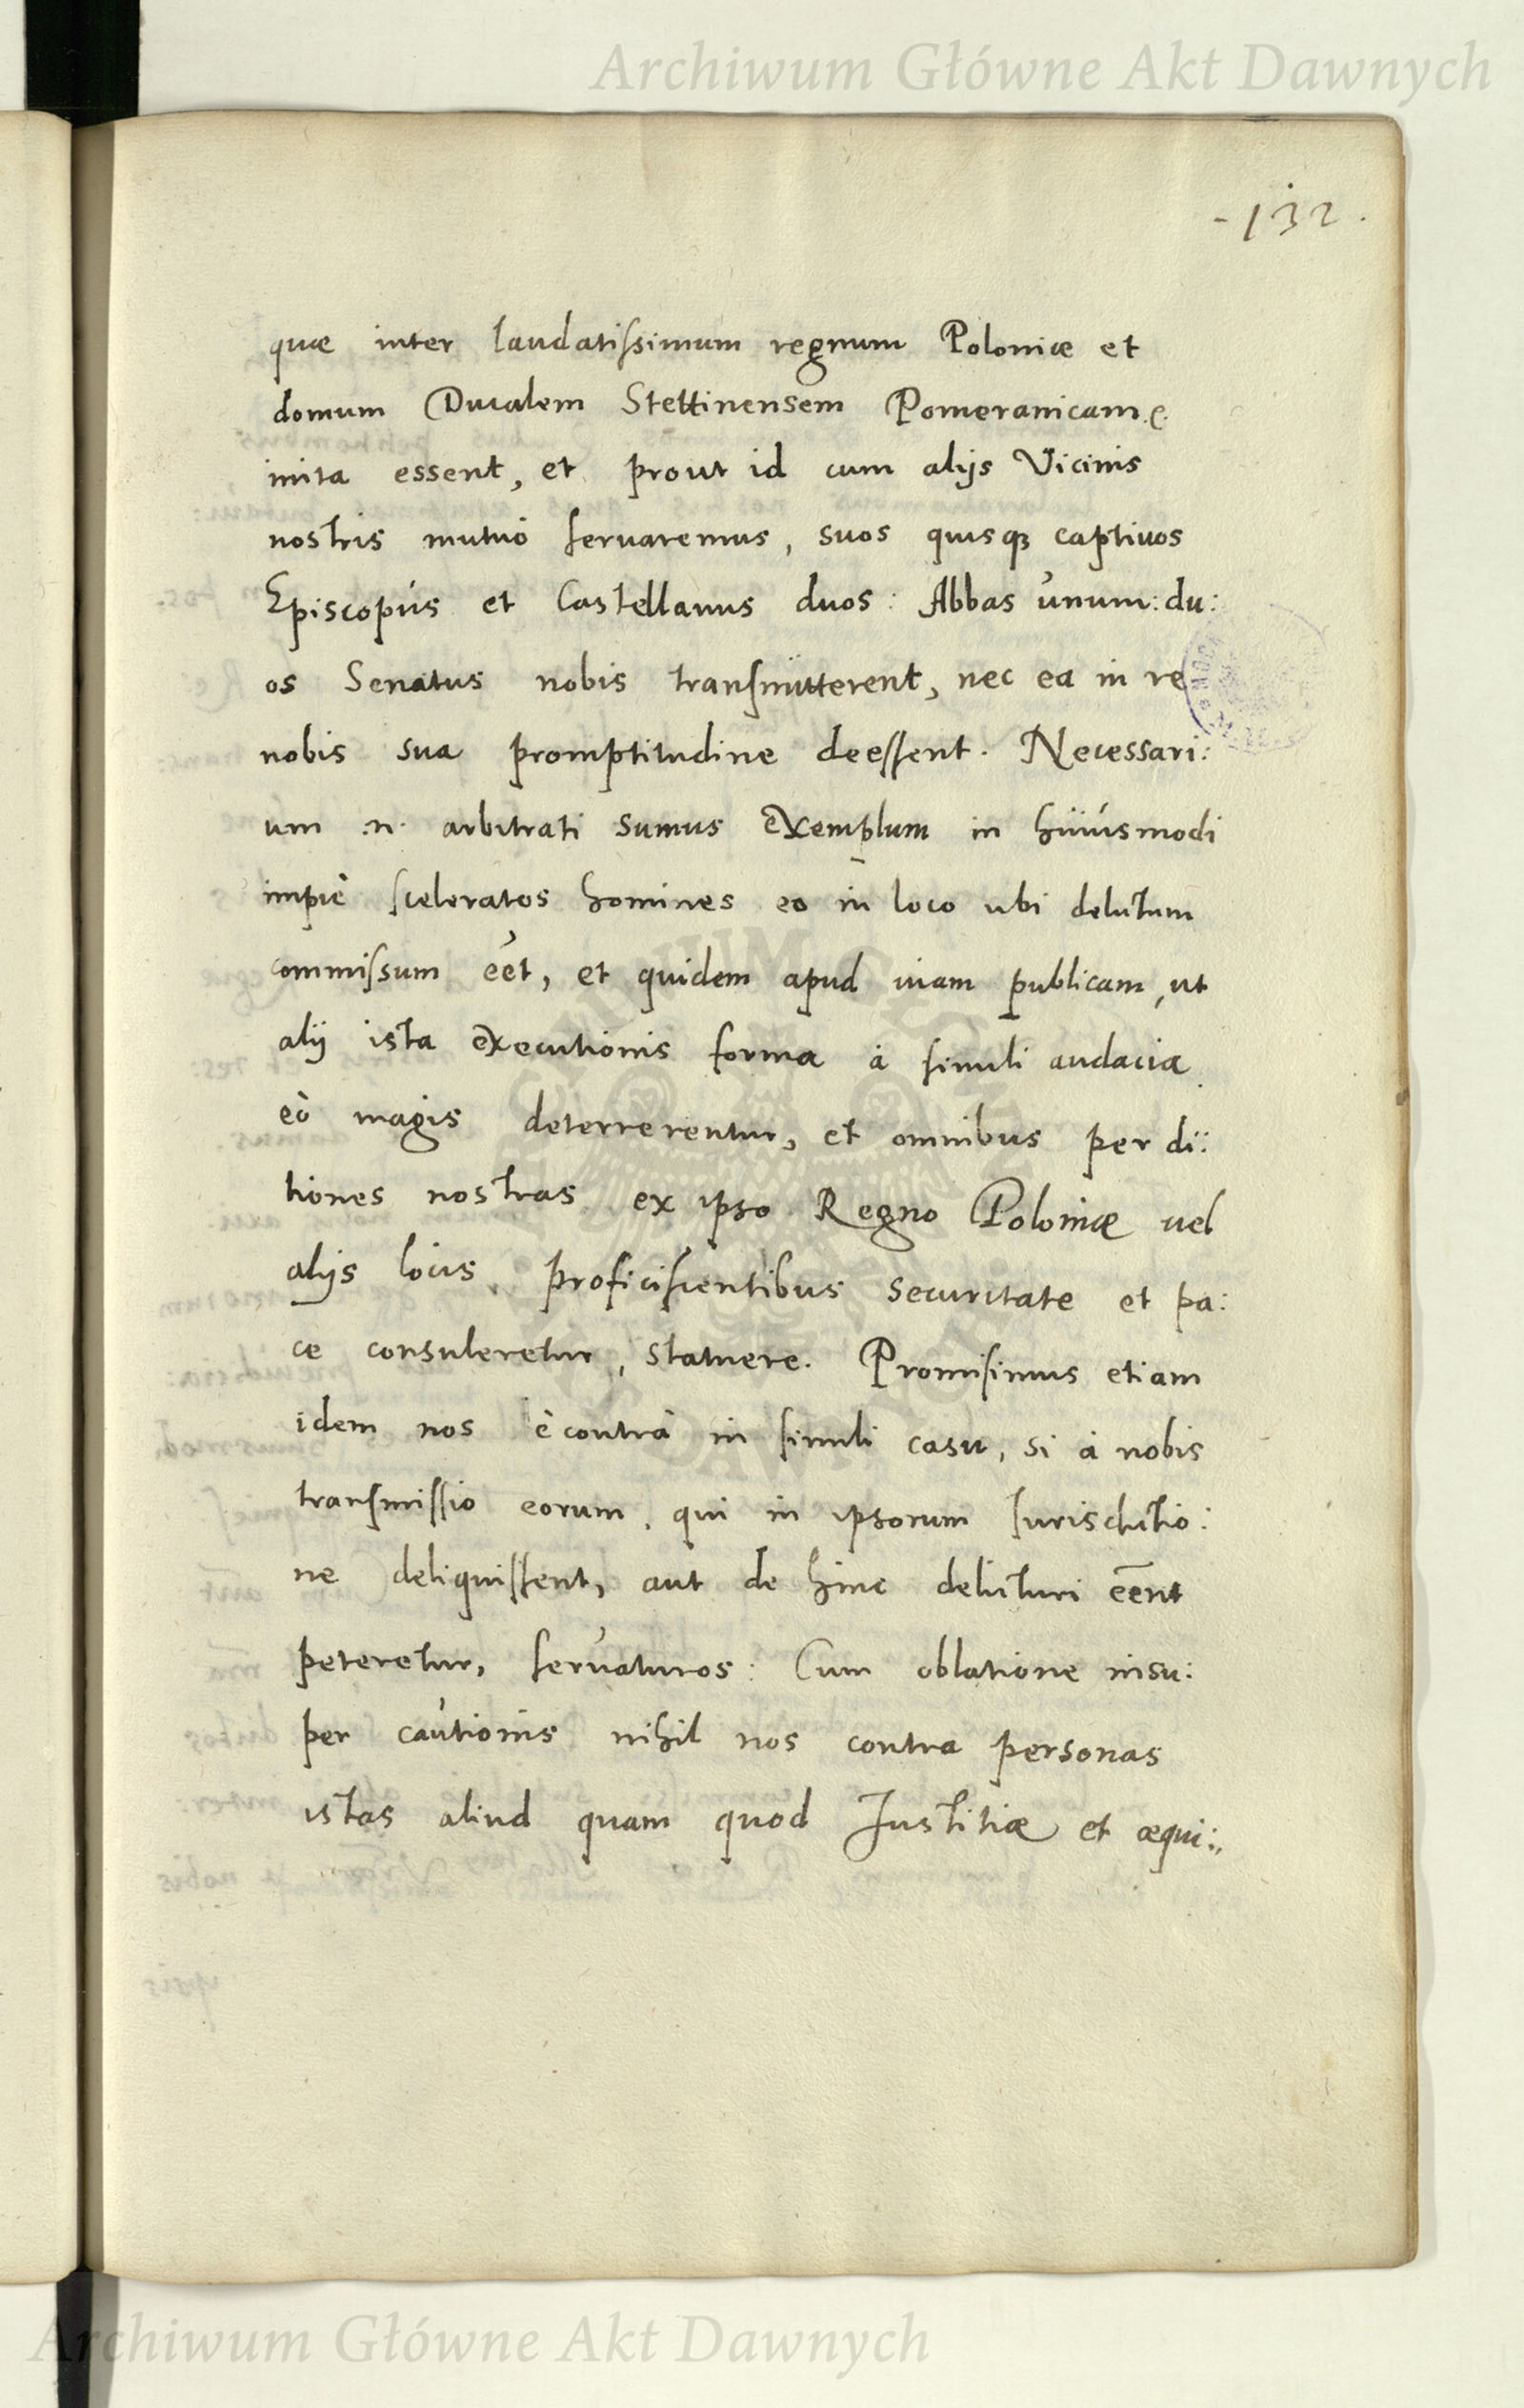 Archiwum Główne Akt Dawnych
-132.
quæ inter laudatissimum regnum Poloniæ et
domum Ducalem Stettinensem Pomeranicam
inita essent, et prout id cum alijs Vicinis
nostris mutuò servaremus, suos quisq; captivos
Episcopus et Castellanus duos: Abbas unum: du:
os Senatus nobis transmitterent, nec ea in re
nobis sua promptitudine deessent. Necessari:
um .n. arbitrati sumus exemplum in huiusmodi
impiè sceleratos homines eo in loco ubi delictum
commissum eét, et quidem apud viam publicam, ut
alij ista executionis forma à simili audacia
eò magis deterrerentur, et omnibus per di:
tiones nostras ex ipso Regno Poloniæ vel
alijs locis proficiscentibus securitate et pa:
ce consuleretur, statuere. Promisimus etiam
idem nos è contrà in simili casu, si à nobis
transmissio eorum, qui in ipsorum Iurisdictio:
ne deliquissent, aut de hinc delicturi eēnt
peteretur, servaturos: Cum oblatione insu:
per cautionis nihil nos contra personas
istas aliud quam quod Iustitiæ et æqui:
Archiwum Główne Akt Dawnych